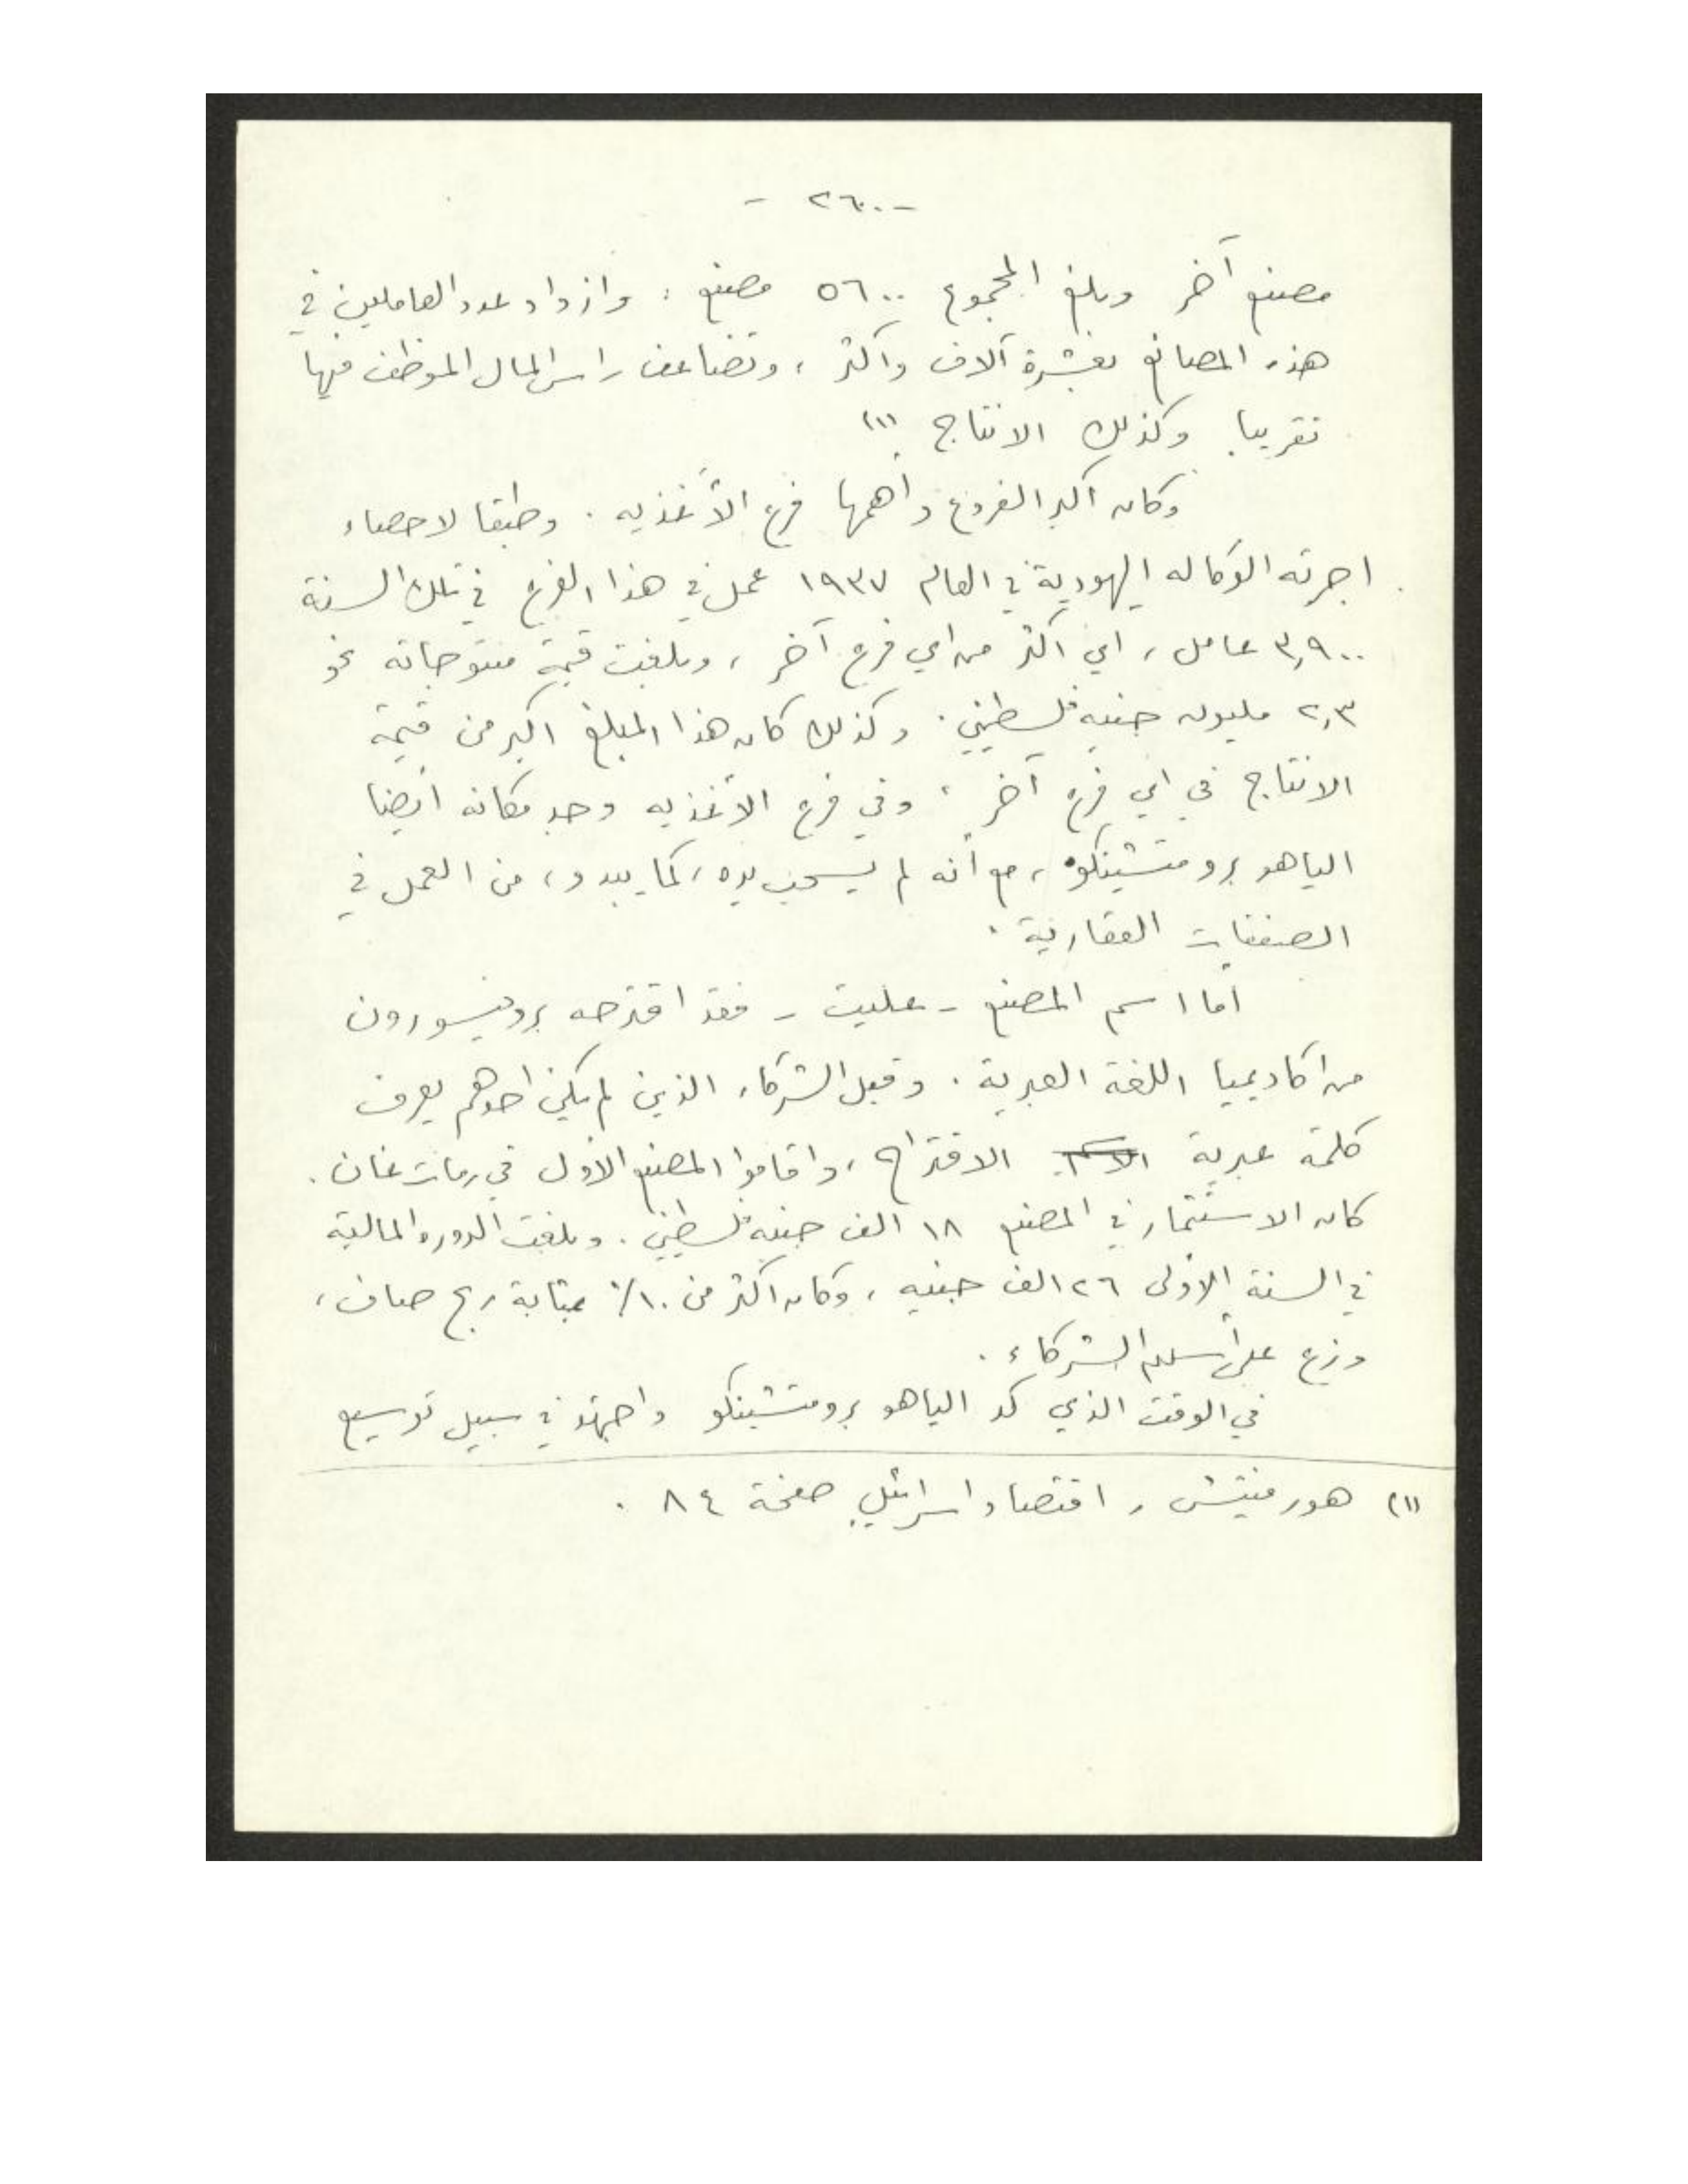 - ٢٦٠ -
مصنع آخر وبلغ المجموع ٥٦٠٠ مصنع ، وازداد عدد العاملين في
هذه المصانع بعشرة آلاف وأكثر ، وتضاعف راس المال الموظف فيها
تقريبا وكذلك الانتاج (١)
وكان أكبر الفروع وأهمها فرع الأغذيه . وطبقا لاحصاء
اجرته الوكاله اليهودية في العام ١٩٣٧ عمل في هذا الفرع في تلك السنة
٣,٩٠٠ عامل ، اي أكثر من اي فرع آخر ، وبلغت قيمة منتوجاته نحو
٢,٣ مليون جنيه فلسطيني . وكذلك كان هذا المبلغ اكبر من قيمة
الانتاج في اي فرع آخر . وفي فرع الأغذيه وجد مكانه أيضا
الياهو برومتشينكو ، مع أنه لم يسحب يده ، كما يبدو ، من العمل في
الصفقات العقارية .
أما اسم المصنع - عليت - فقد اقترحه بروفيسورون
من اكاديميا اللغة العبرية . وقبل الشركاء الذين لم يكن احدهم يعرف
كلمة عبرية الاقتراح ، واقاموا المصنع الأول في رمات غان .
كان الاستثمار في المصنع ١٨ الف جنيه فلسطيني . وبلغت الدوره المالية
في السنة الأولى ٢٦ الف جنيه ، وكان اكثر من ١٠٪ بمثابة ربح صاف ،
وزع على الشركاء .
في الوقت الذي كد الياهو برومتشينكو واجتهد في سبيل توسيع
(١) هورفيتش ، اقتصاد اسرائيل صفحة ٨٤ .